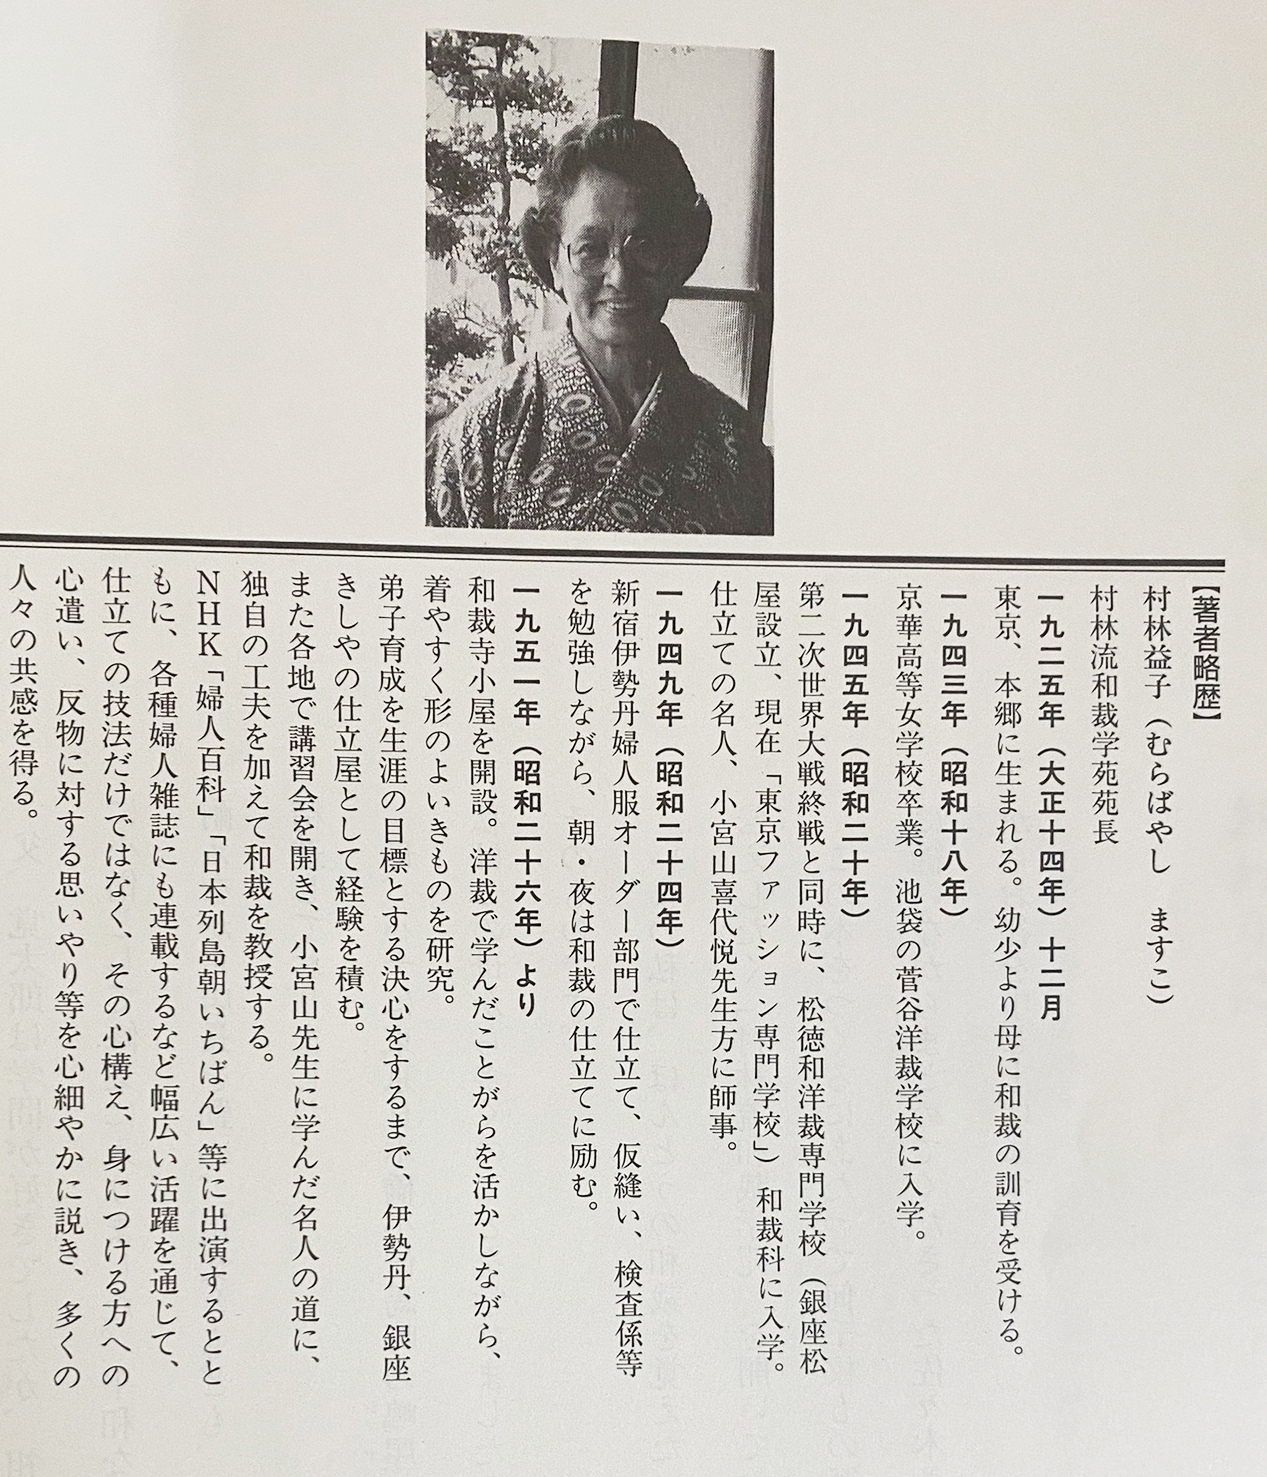 【著者略歴】
村林益子（むらばやし　ますこ）
村林流和裁学苑苑長
一九二五年（大正十四年）十二月
東京、本郷に生まれる。幼少より母に和裁の訓育を受ける。
一九四三年（昭和十八年）
京華高等女学校卒業。池袋の菅谷洋裁学校に入学。
一九四五年（昭和二十年）
第二次世界大戦終戦と同時に、松徳和洋裁専門学校（銀座松
屋設立、現在「東京ファッション専門学校」）和裁科に入学。
仕立ての名人、小宮山喜代悦先生方に師事。
一九四九年（昭和二十四年）
新宿伊勢丹婦人服オーダー部門で仕立て、仮縫い、検査係等
を勉強しながら、朝・夜は和裁の仕立てに励む。
一九五一年（昭和二十六年）より
和裁寺小屋を開設。洋裁で学んだことがらを活かしながら、
着やすく形のよいきものを研究。
弟子育成を生涯の目標とする決心をするまで、伊勢丹、銀座
きしやの仕立屋として経験を積む。
また各地で講習会を開き、小宮山先生に学んだ名人の道に、
独自の工夫を加えて和裁を教授する。
NHK「婦人百科」「日本列島朝いちばん」等に出演するとと
もに、各種婦人雑誌にも連載するなど幅広い活躍を通じて、
仕立ての技法だけではなく、その心構え、身につける方への
心遣い、反物に対する思いやり等を心細やかに説き、多くの
人々の共感を得る。